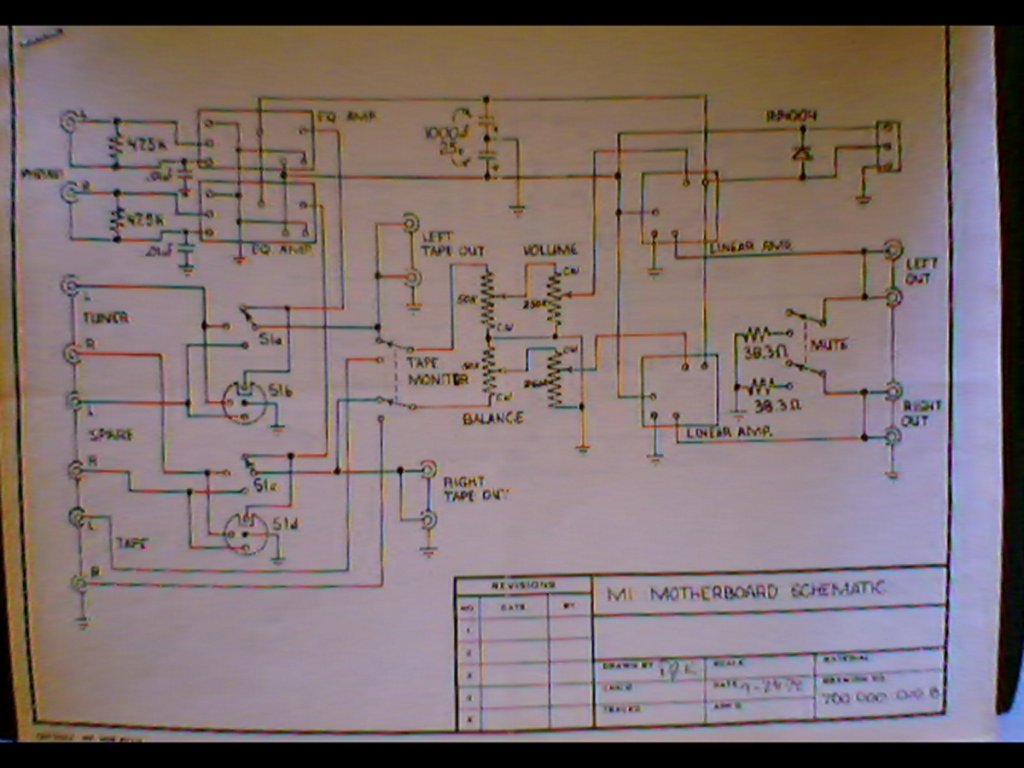 L
EQ AMP.
47.5K
1000µf
25v
PHONO
R
47.5K
.01uf
EQ AMP.
LEFT
TAPE OUT
VOLUME
CW
LINEAR AMP.
LEFT
OUT
L
TUNER
S1a
50K
250K
CW
R
TAPE
MONITOR
50K
CW
38.3Ω
MUTE
S1b
250K
CW
38.3Ω
L
BALANCE
RIGHT
OUT
SPARE
LINEAR AMP.
R
S1c
RIGHT
TAPE OUT
S1d
L
TAPE
R
REVISIONS
NO DATE BY
1
2
3
4
5
M1 MOTHERBOARD SCHEMATIC
DRAWN BY SCALE MATERIAL
CHK'D DATE DRAWING NO.
TRACED APP'D